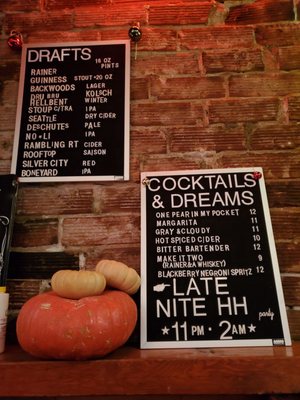 DRAFTS 16 OZ PINTS
RAINER
GUINNESS STOUT *20 OZ
BACKWOODS LAGER
DRU BRU KOLSCH
HELLBENT WINTER
SOUP C/TRA IPA
SEATLE DRY CIDER
DESCHUTES PALE
NO-LI IPA
RAMBLING RT CIDER
ROOFTOP SAISON
SILVER CITY RED
BONEYARD IPA
COCKTAILS
& DREAMS
ONE PEAR IN MY POCKET 12
MARGARITA 11
GRAY & CLOUDY 11
HOT SPICED CIDER 10
BITTER BARTENDER 12
MAKE IT TWO 9
(RAINER & A WHISKEY)
BLACKBERRY NEGRONI SPRITZ 12
LATE
NITE HH party
*11PM - 2AM*